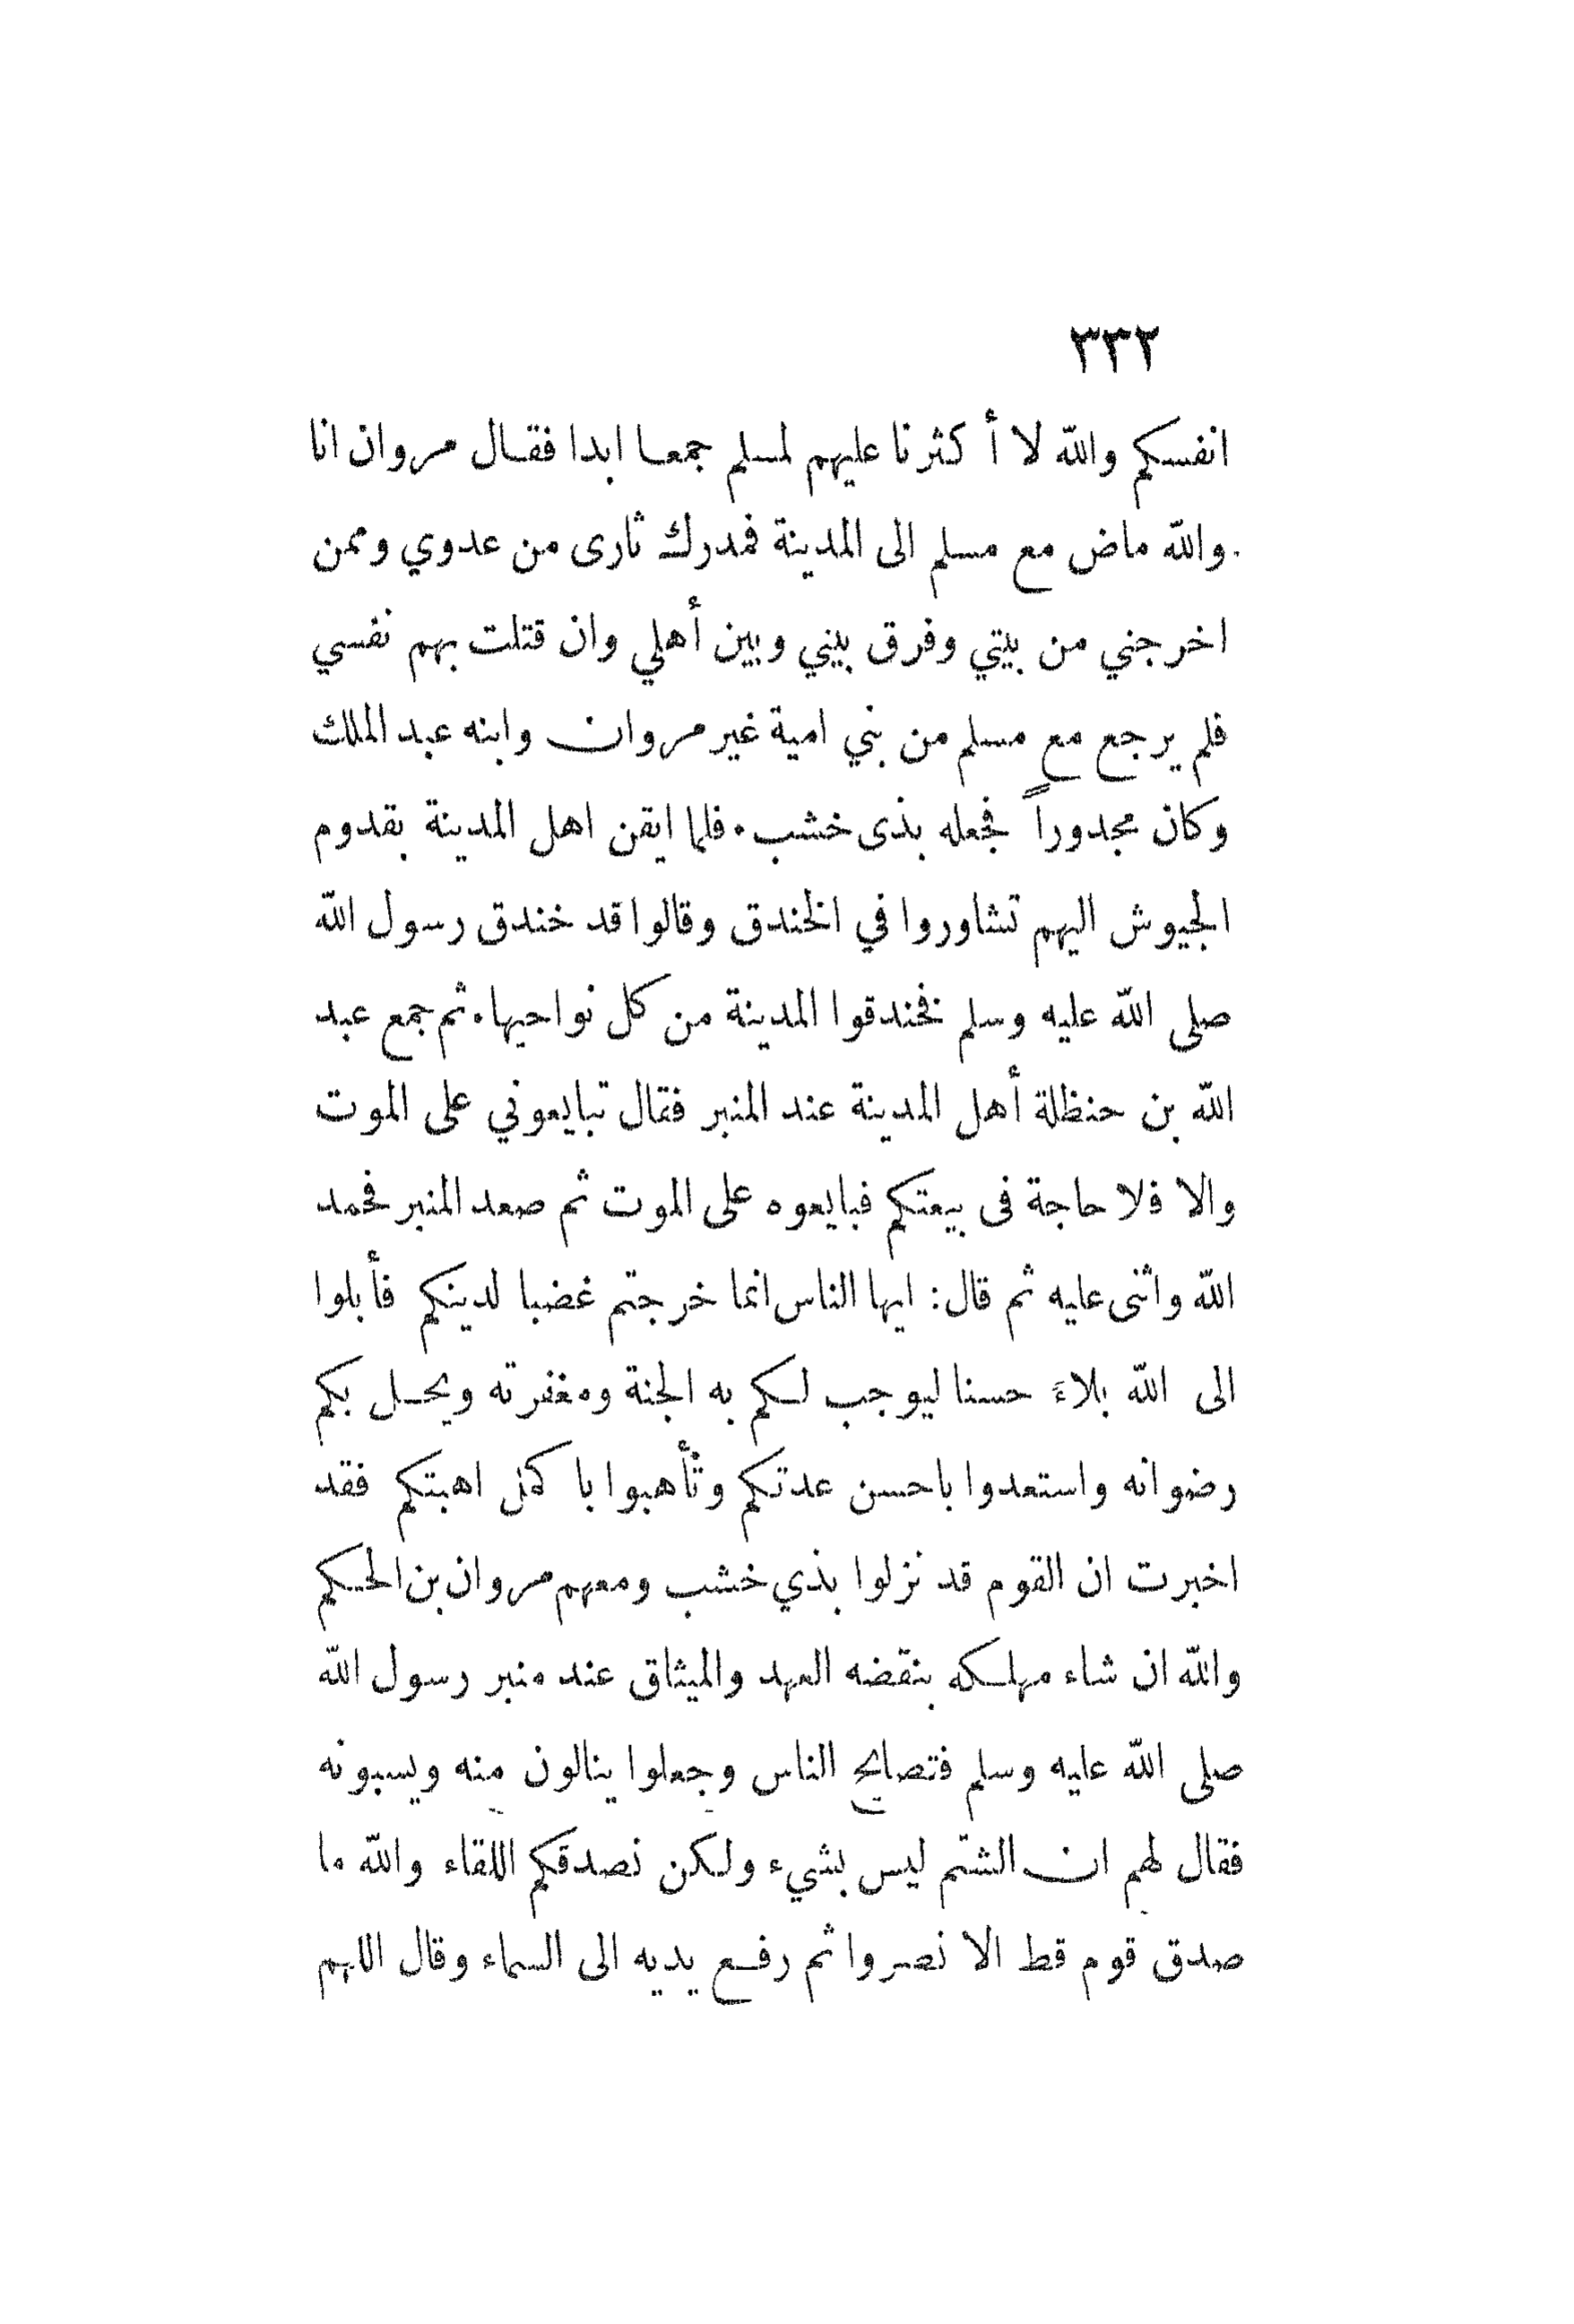 ٣٣٢
انفسكم والله لا أكثرنا عليهم لمسلم جمعا ابدا فقال مروان انا
والله ماض مع مسلم الى المدينة فمدرك ثارى من عدوي وممن
اخرجني من بيتي وفرق بيني وبين أهلي وان قتلت بهم نفسي
فلم يرجع مع مسلم من بني امية غير مروان وابنه عبد الملك
وكان مجدوراً فجعله بذى خشب. فلما ايقن اهل المدينة بقدوم
الجيوش اليهم تشاوروا في الخندق وقالوا قد خندق رسول الله
صلى الله عليه وسلم فخندقوا المدينة من كل نواحيها. ثم جمع عبد
الله بن حنظلة أهل المدينة عند المنبر فقال تبايعوني على الموت
والا فلا حاجة في بيعتكم فبايعوه على الموت ثم صعد المنبر فحمد
الله واثنى عليه ثم قال: ايها الناس انما خرجتم غضبا لدينكم فأبلوا
الى الله بلاءً حسنا ليوجب لكم به الجنة ومغفرته ويحل بكم
رضوانه واستعدوا باحسن عدتكم وتأهبوا باكمل اهبتكم فقد
اخبرت ان القوم قد نزلوا بذي خشب ومعهم مروان بن الحكم
والله ان شاء مهلكه بنقضه العهد والميثاق عند منبر رسول الله
صلى الله عليه وسلم فتصايح الناس وجعلوا ينالون منه ويسبونه
فقال لهم ان الشتم ليس بشيء ولكن نصدقكم اللقاء والله ما
صدق قوم قط الا نصروا ثم رفع يديه الى السماء وقال اللهم